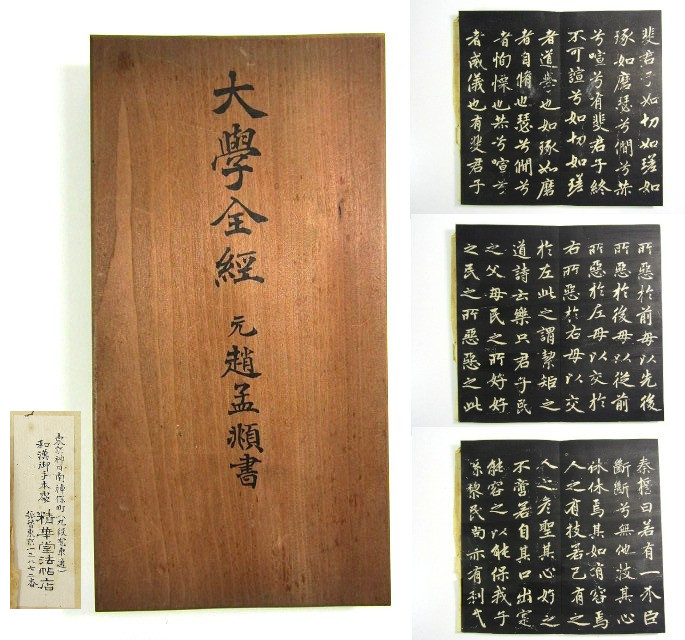 大學全經
元趙孟頫書
東京神田南神保町(九段電車通)
和漢御手本處 精華堂法帖店
振替東京
斐君子如切如瑳如
琢如磨瑟兮僩兮赫
兮喧兮有斐君子終
不可諠兮如切如瑳
者道學也如琢如磨
者自脩也瑟兮僩兮
者恂慄也赫兮喧兮
者威儀也有斐君子
所惡於前毋以先後
所惡於後毋以從前
所惡於左毋以交於
右所惡於右毋以交
於左此之謂絜矩之
道詩云樂只君子民
之父母民之所好好
之民之所惡惡之此
秦誓曰若有一介臣
斷斷兮無他技其心
休休焉其如有容焉
人之有技若己有之
人之彥聖其心好之
不啻若自其口出寔
能容之以能保我子
孫黎民尚亦有利哉